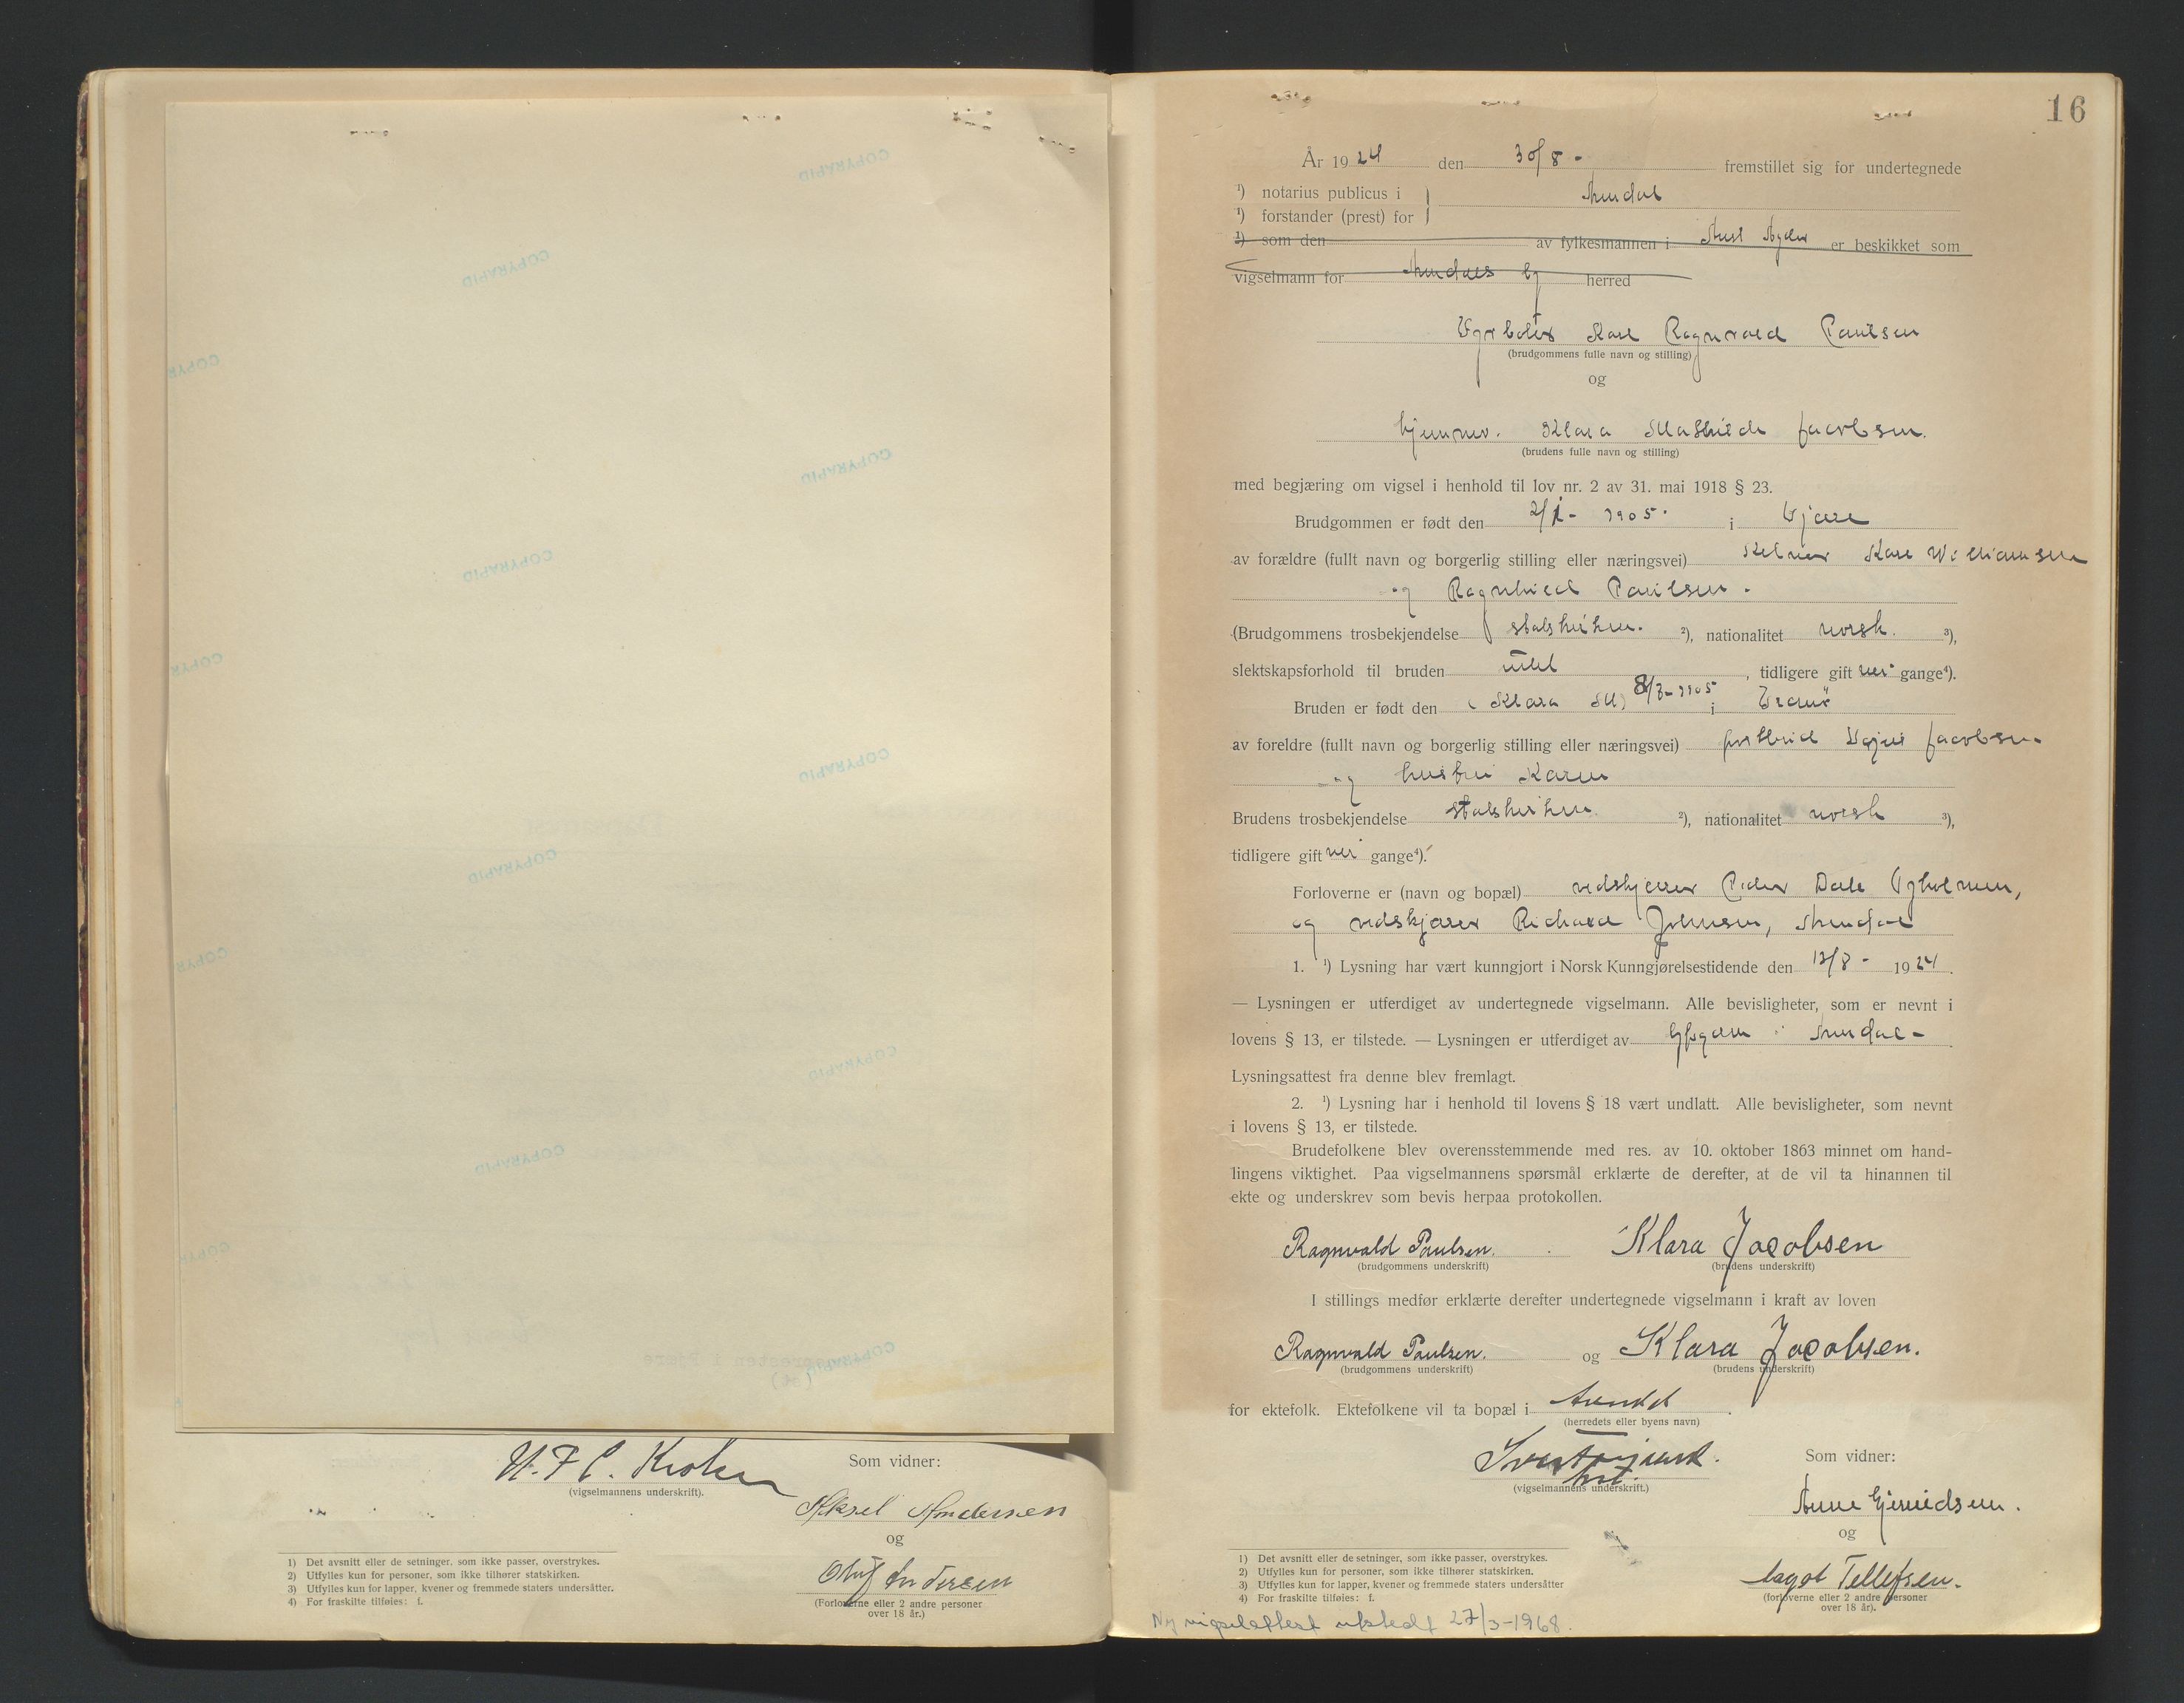 COPYRAPID
COPYRAPID
COPYR
COPYRAPID
COPYRAPID
COPYR
COPYRAPID
COPYRAPID
COPYR
COPYRAPID
COPYRAPID
COPYR
COPYRAPID
Som vidner:
(vigselmannens underskrift).
Aksel Andersen
og
Oluf Andersen
(Forloverne eller 2 andre personer
over 18 år.)
1) Det avsnitt eller de setninger, som ikke passer, overstrykes.
2) Utfylles kun for personer, som ikke tilhører statskirken.
3) Utfylles kun for lapper, kvener og fremmede staters undersåtter.
4) For fraskilte tilføies: f.
16
År 1924 den 30/8 - fremstillet sig for undertegnede
1) notarius publicus i
Arendal
1) forstander (prest) for
1) som den av fylkesmannen i Aust Agder er beskikket som
vigselmann for Arendals by herred
Karl Ragnvald Paulsen
(brudgommens fulle navn og stilling)
og
Klara Mathilde Jacobsen.
(brudens fulle navn og stilling)
med begjæring om vigsel i henhold til lov nr. 2 av 31. mai 1918 § 23.
Brudgommen er født den 2/1 - 1905. i
av forældre (fullt navn og borgerlig stilling eller næringsvei) Kelner Karl Williamsen
og Ragnhild Paulsen.
(Brudgommens trosbekjendelse statskirken. 2), nationalitet norsk. 3),
slektskapsforhold til bruden intet, tidligere gift nei gange4).
Bruden er født den (Klara M) 8/3-1905 i Tromø
av foreldre (fullt navn og borgerlig stilling eller næringsvei) Jacobsen
og hustru Karen
Brudens trosbekjendelse statskirken 2), nationalitet norsk 3),
tidligere gift nei gange4).
Forloverne er (navn og bopæl) vedskjærer Peder Dale
og vedskjærer Richard Johnsen, Arendal
1. 1) Lysning har vært kunngjort i Norsk Kunngjørelsestidende den 13/8 - 1924.
— Lysningen er utferdiget av undertegnede vigselmann. Alle bevisligheter, som er nevnt i
lovens § 13, er tilstede. — Lysningen er utferdiget av byfogden i Arendal -
Lysningsattest fra denne blev fremlagt.
2. 1) Lysning har i henhold til lovens § 18 vært undlatt. Alle bevisligheter, som nevnt
i lovens § 13, er tilstede.
Brudefolkene blev overensstemmende med res. av 10. oktober 1863 minnet om hand-
lingens viktighet. Paa vigselmannens spørsmål erklærte de derefter, at de vil ta hinannen til
ekte og underskrev som bevis herpaa protokollen.
Ragnvald Paulsen. Klara Jacobsen
(brudgommens underskrift) (brudens underskrift)
I stillings medfør erklærte derefter undertegnede vigselmann i kraft av loven
Ragnvald Paulsen. og Klara Jacobsen.
(brudgommens underskrift) (brudens underskrift)
for ektefolk. Ektefolkene vil ta bopæl i Arendal.
(herredets eller byens navn)
Som vidner:
(vigselmannens underskrift.)
Anne
og
Aagot Tellefsen.
(forloverne eller 2 andre personer
over 18 år).
1) Det avsnitt eller de setninger, som ikke passer, overstrykes.
2) Utfylles kun for personer, som ikke tilhører statskirken.
3) Utfylles kun for lapper, kvener og fremmede staters undersåtter
4) For fraskilte tilføies: f.
Ny vigselattest utstedt 27/3-1968.